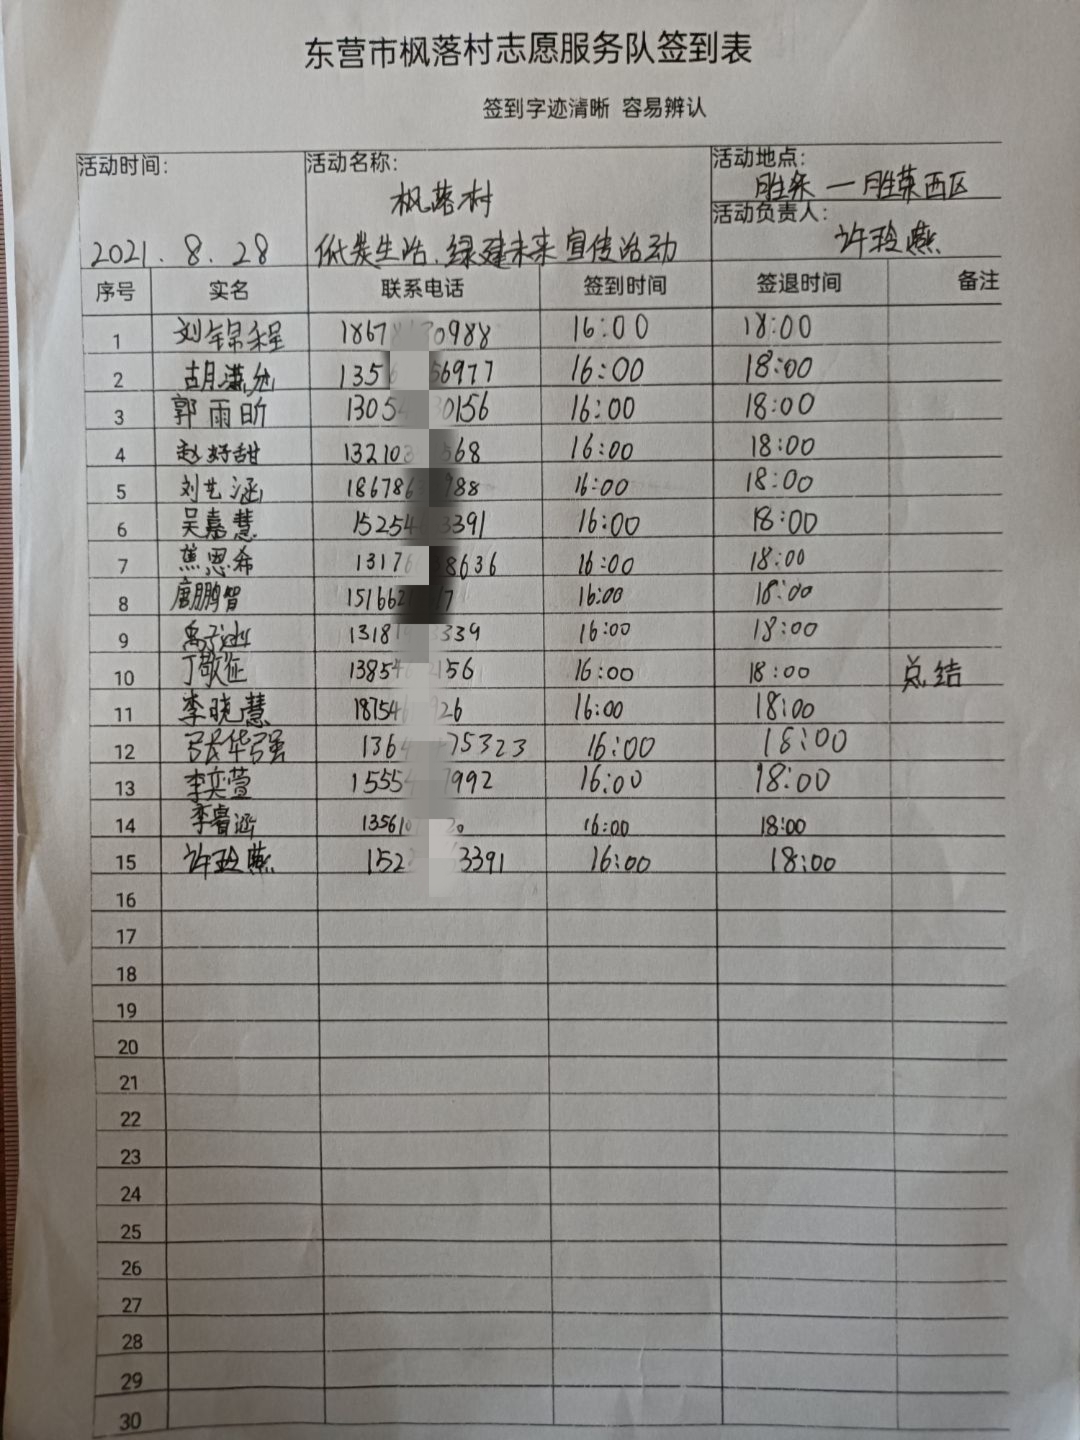 东营市枫落村志愿服务队签到表
签到字迹清晰 容易辨认
活动时间: 活动名称: 活动地点:
枫落村 胜东—胜莱西区
活动负责人:
2021.8.28 低炭生活.绿建未来宣传活动 许玲燕
序号 实名 联系电话 签到时间 签退时间 备注
1 刘锦程 1867 0988 16:00 18:00
2 胡潇 135 56977 16:00 18:00
3 郭雨昕 1305 0156 16:00 18:00
4 赵好甜 13210 568 16:00 18:00
5 刘艺涵 186786 988 16:00 18:00
6 吴嘉慧 15254 3391 16:00 18:00
7 蕉恩希 1317 8636 16:00 18:00
8 唐鹏智 151662 17 16:00 18:00
9 1318 339 16:00 18:00
10 丁敬征 13854 156 16:00 18:00 总结
11 李晓慧 18754 926 16:00 18:00
12 张华强 136 75323 16:00 18:00
13 李奕萱 1555 7992 16:00 18:00
14 李睿涵 13561 20 16:00 18:00
15 许玲燕 152 3391 16:00 18:00
16
17
18
19
20
21
22
23
24
25
26
27
28
29
30